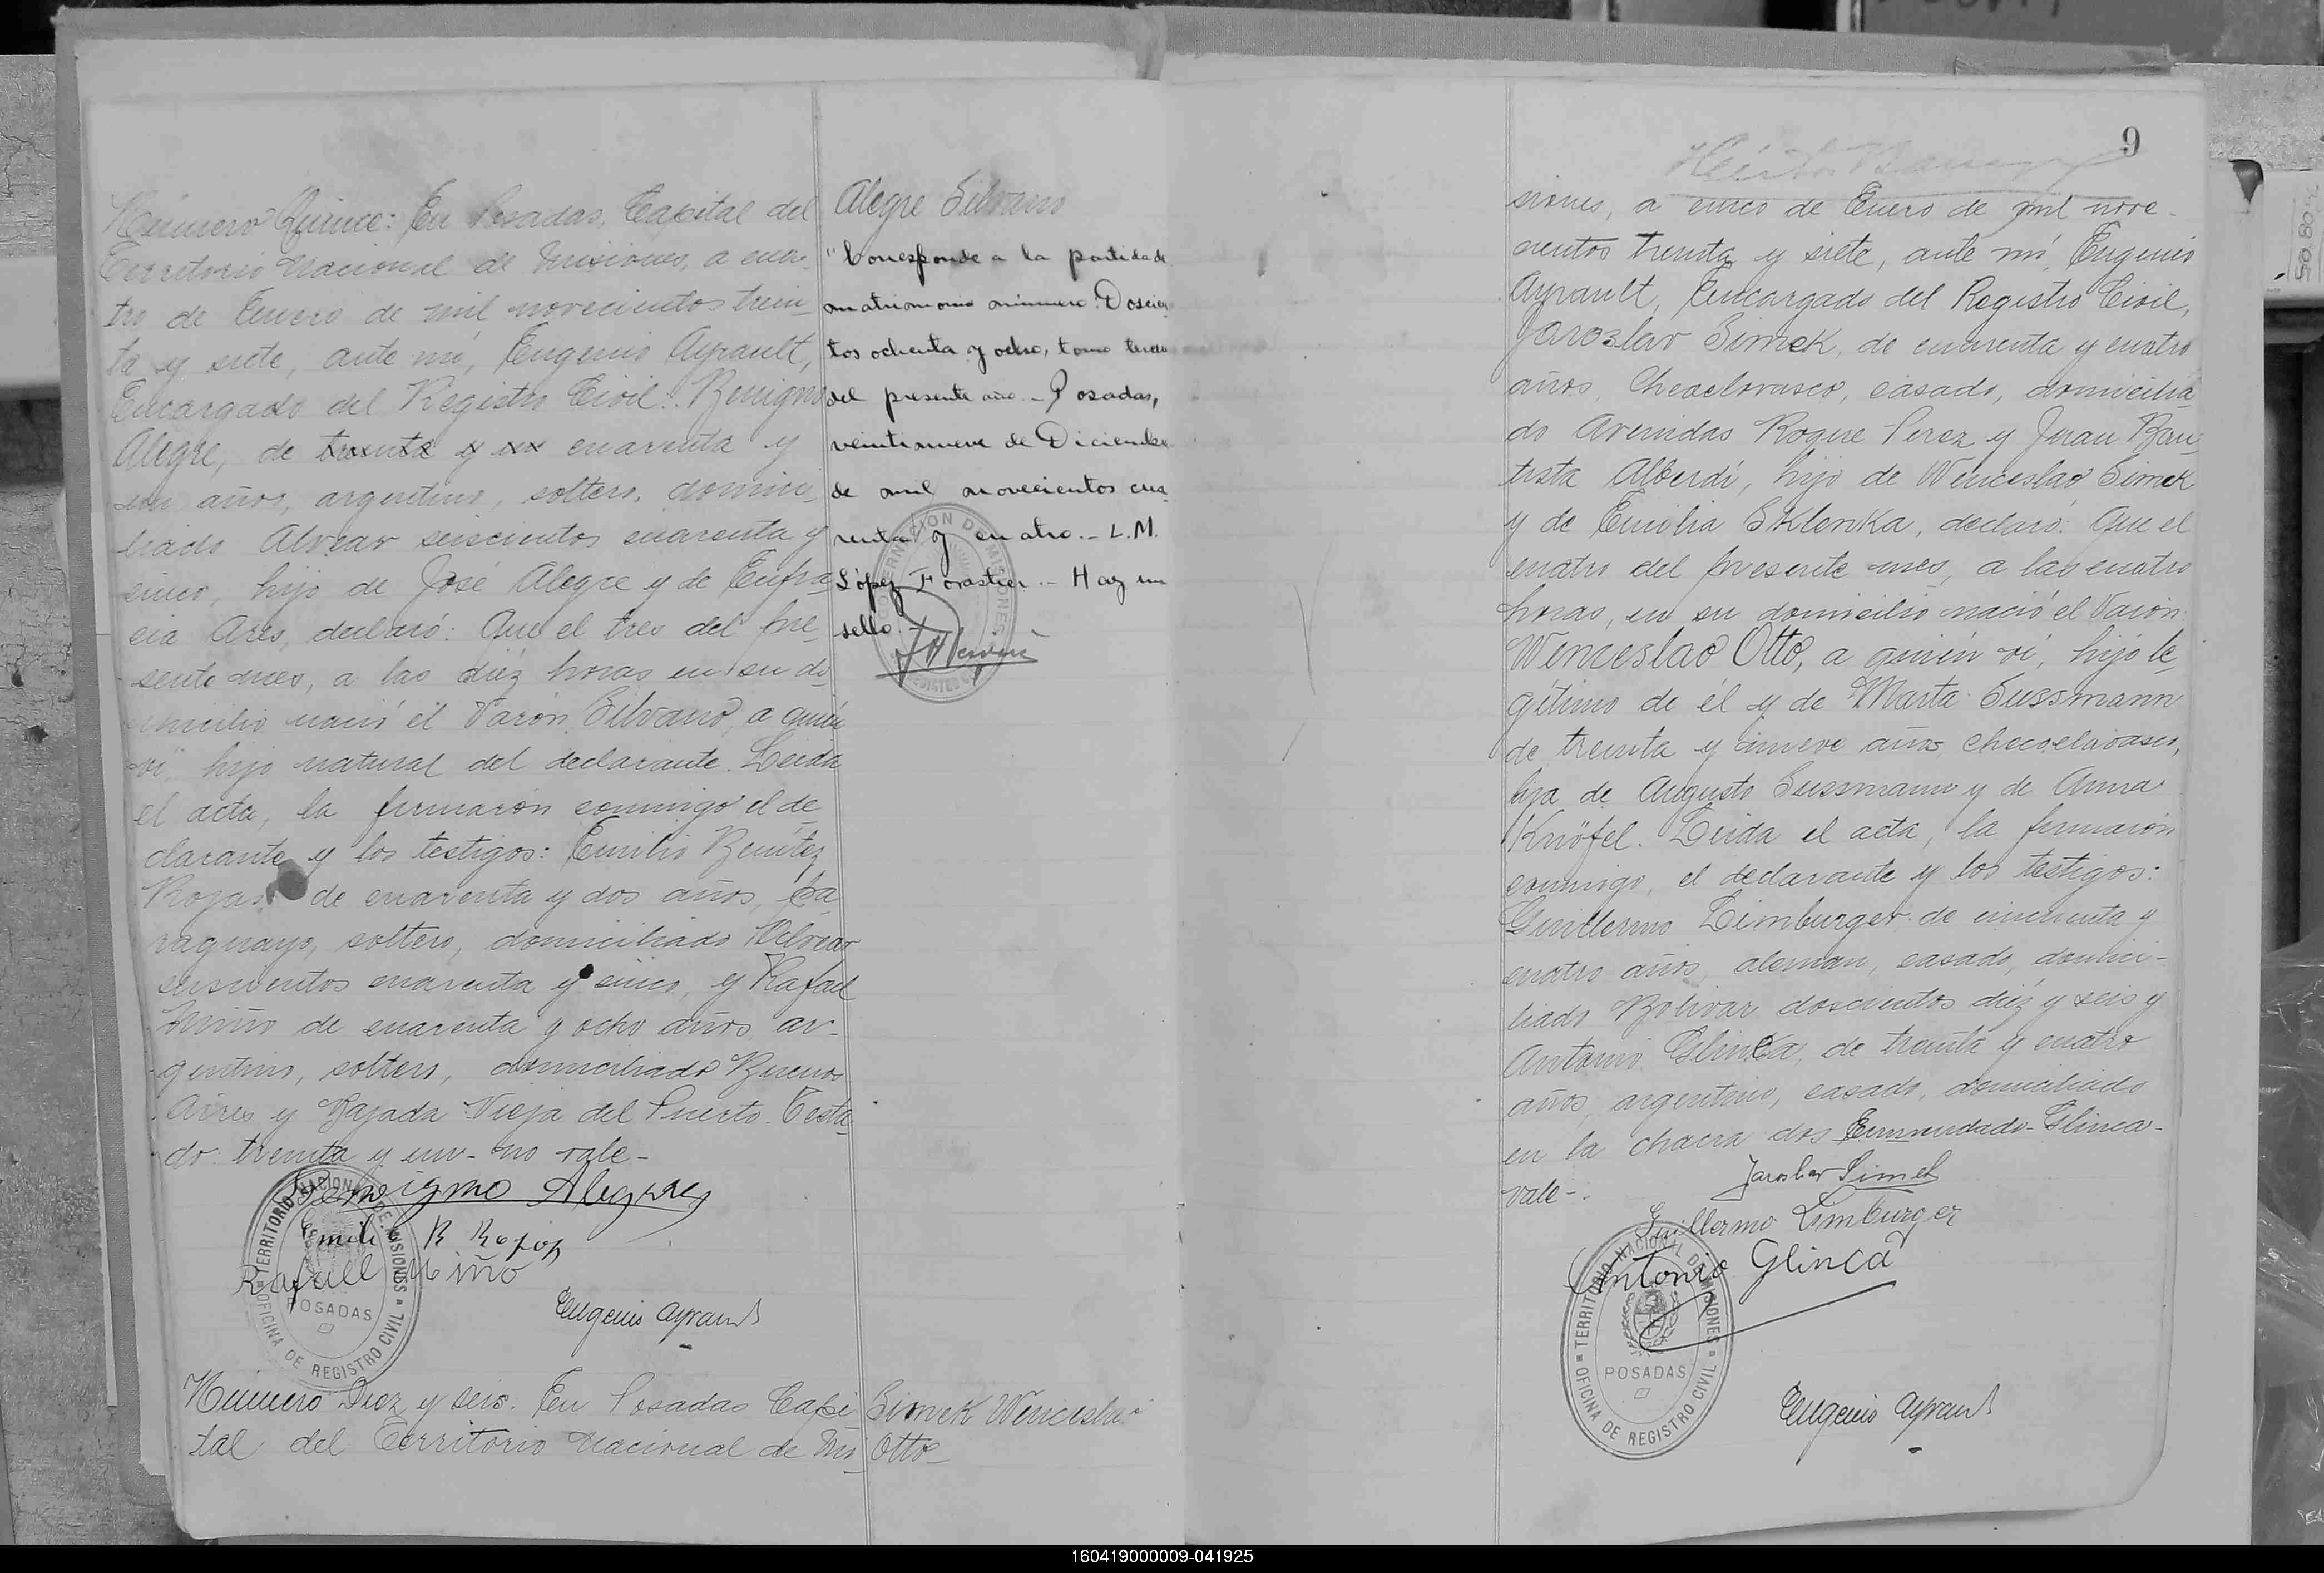 Número Quince: En Posadas, Capital del
Territorio Nacional de Misiones, a cua-
tro de Enero de mil novecientos trein-
ta y siete, ante mí, Eugenio Ayrault,
Encargado del Registro Civil. Benigno
Alegre, de treinta y un cuarenta y
un años, argentino, soltero, domici-
liado Alvear seiscientos cuarenta y
cinco, hijo de José Alegre y de Eufra-
cia Ares, declaró: Que el tres del pre-
sente mes, a las diéz horas en su do-
micilio nació el Varón Silvano, a quién
ví, hijo natural del declarante. Leida
el acta, la firmarón conmigo el de-
clarante y los testigos: Emilio Benítez
Rojas de cuarenta y dos años, pa-
raguayo, soltero, domiciliado Alvear
seiscientos cuarenta y cinco, y Rafael
Miño de cuarenta y ocho años ar-
gentino, soltero, domiciliado Buenos
Aires y Bajada Vieja del Puerto. Testa-
do: treinta y un- no vale-
Benigno Alegre
Emili B Rojas
Rafaell Miño
Eugenio Ayrault
TERRITORIO NACIONAL DE MISIONES
POSADAS
OFICINA DE REGISTRO CIVIL
Alegre Silvano
"Corresponde a la partida de
matrimonio número: Doscien
tos ochenta y ocho, tomo tercero
del presente año.- Posadas,
veintinueve de Diciembre
de mil novecientos cua
renta y cuatro.- L.M.
López Forastier.- Hay un
sello.-
Número Diez y seis: En Posadas Capi-
tal del Territorio Nacional de Mi-
Simek Wenceslao
Otto-
9
siones, a cinco de Enero de mil nove-
cientos treinta y siete, ante mí, Eugenio
Ayrault, Encargado del Registro Civil,
Jaroslav Simek, de cuarenta y cuatro
años, Checoslovasco, casado, domicilia-
do Avenidas Roque Perez y Juan Bau-
tista Alberdi, hijo de Wenceslao Simek
y de Emilia Sklenka, declaró: Que el
cuatro del presente mes, a las cuatro
horas, en su domicilio nació el Varón:
Wenceslao Otto, a quién ví, hijo le-
gítimo de él y de Marta Sussmann
de treinta y nueve años checoslovasco,
hija de Augusto Sussmann y de Anna
Knöfel. Leida el acta, la firmarón
conmigo, el declarante y los testigos:
Guillermo Limburger de cincuenta y
cuatro años, aleman, casado, domici-
liado Bolivar doscientos diéz y seis y
Antonio Glinca, de treinta y cuatro
años, argentino, casado, domiciliado
en la chacra dos Enmendado- Glinca-
vale-.
Jaroslav Simek
Guillermo Limburger
Antonio Glinca
TERRITORIO NACIONAL DE MISIONES
POSADAS
OFICINA DE REGISTRO CIVIL
Eugenio Ayrault
160419000009-041925